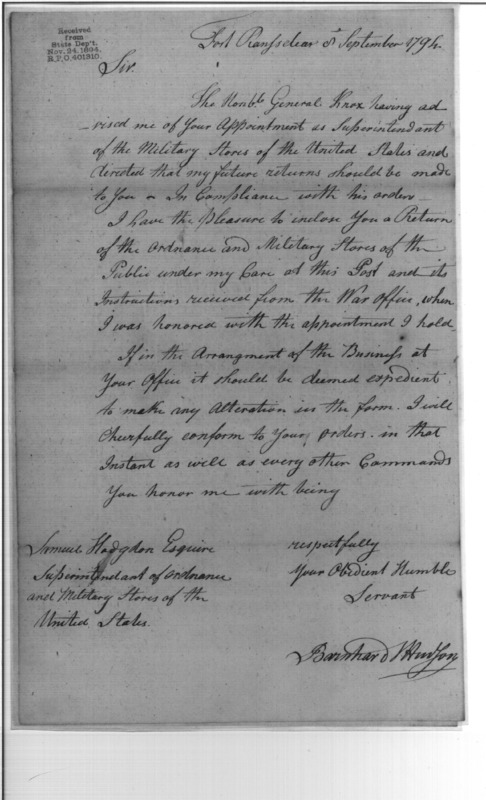 Received
from
State Dep't.
Nov. 24, 1894.
R.P.O. 401310
Fort Ransselear 8 September 1794.
Sir.
The Honble General Knox having ad
-vised me of Your Appointment as Superintendant
of the Military Stores of the United States and
directed that my future returns should be made
to You In Compliance with his orders
I have the Pleasure to inclose You a Return
of the Ordnance and Military Stores of the
Public under my Care at this Post and its
Instructions received from the War Office, when
I was honored with the appointment I hold
If in the Arrangment of the Business at
Your Office it should be deemed expedient
to make any Alteration in the form. I will
Chearfully conform to Your orders. in that
Instant as well as every other Commands
You honor me with being
respectfully
Your Obedient Humble
Servant
Barnhard
Samuel Hodgdon Esquire
Superintendant of Ordnance
and Military Stores of the
United States.